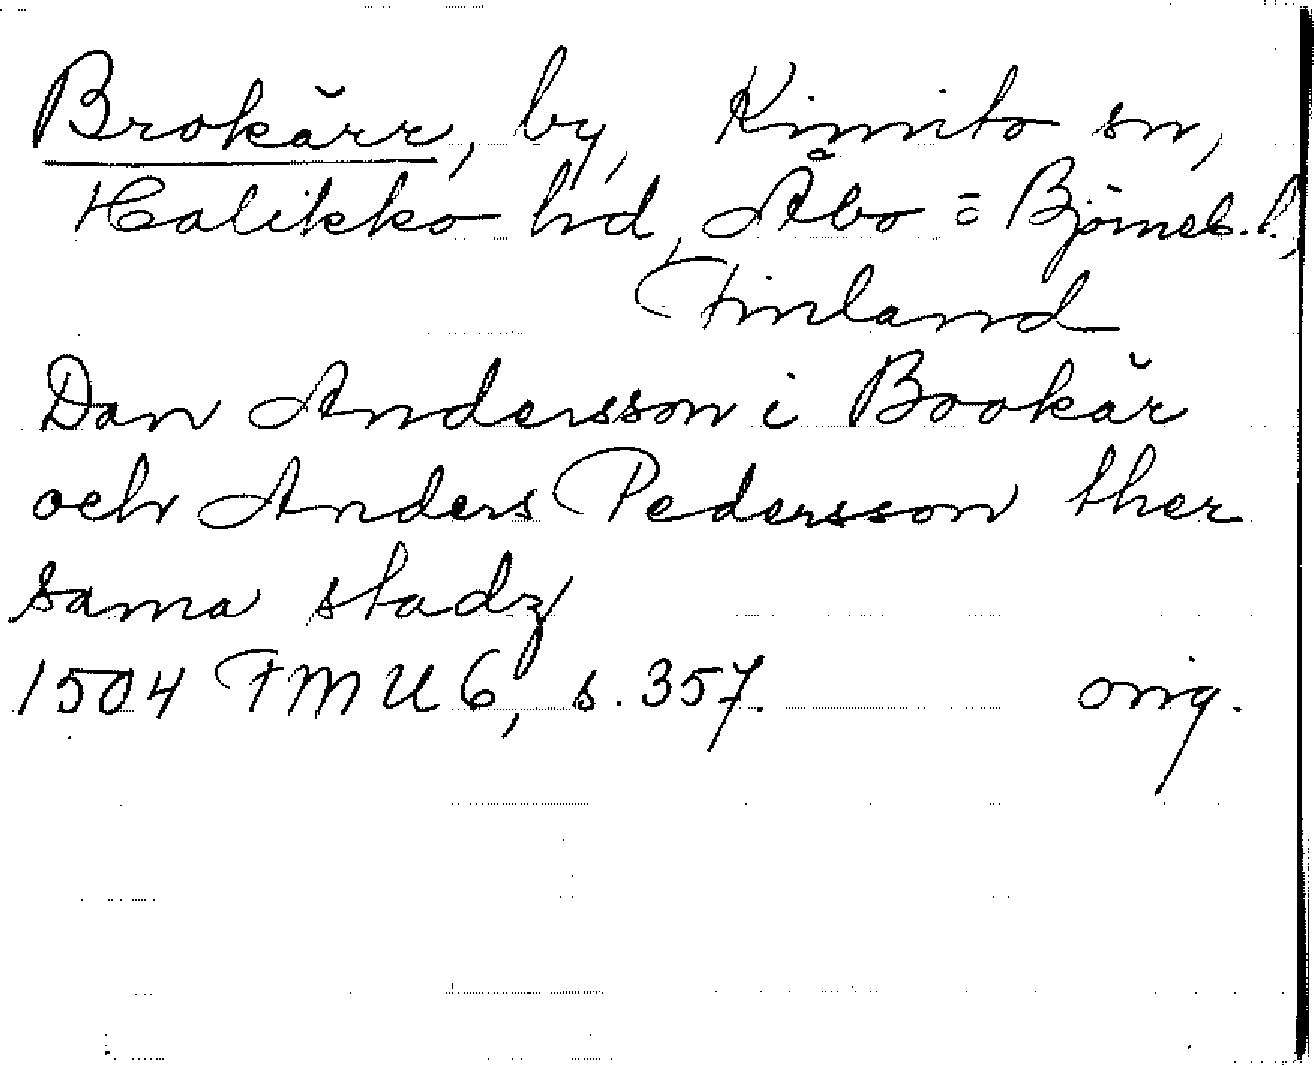 Brokärr, by, Kimito sn,
Halikko hd, Åbo = Björneb. l.,
Finland
Dan Andersson i Bookär
och Anders Pedersson ther
sama stadz
1504 FMU 6, s. 357. orig.